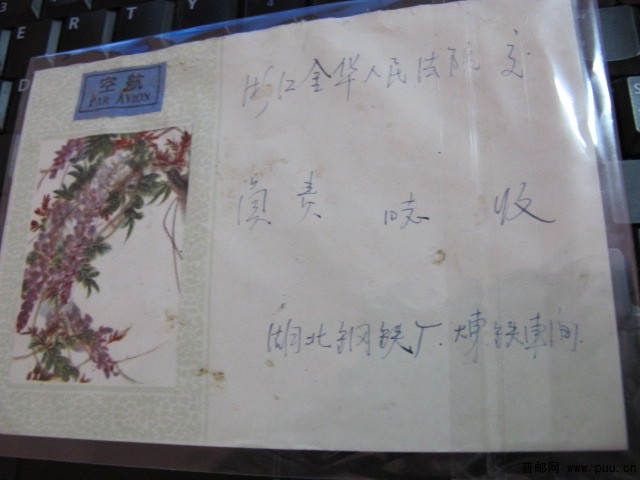 空航
PAR AVION
浙江金华人民法院 交
责 收
湖北钢铁厂.煉铁車间.
E R T Y
普邮网 www.puu.cn